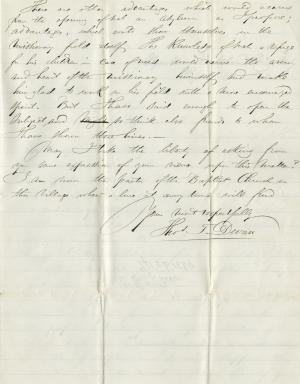 There are other advantages which would accrue
from the opening of such an Asylum as I propose;
advantages, which unite than themselves in the
missionary field itself. The Knowledge of such a refuge
for his children in case of need would nerve the arm
and heart of the missionary himself, and enable
him to work on his field with a more encouraged
spirit. But I have said enough to open the
subject and to think also friends to whom
I have shown these lines.—
May I take the liberty of asking from
you some expression of your views upon this matter?
I am now the pastor of the Baptist Church in
this village where a line at any time will find
Yours most respectfully
Thos. T. Devan